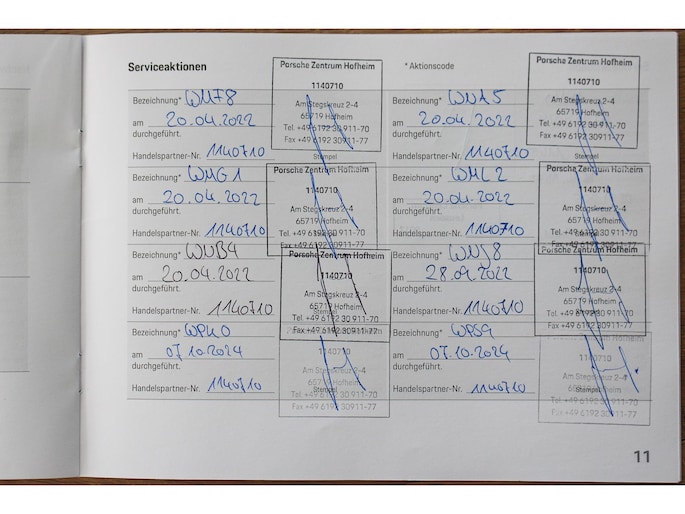 Serviceaktionen
* Aktionscode
Bezeichnung* WMF8
am 20.04.2022
durchgeführt.
Handelspartner-Nr. 1140710
Porsche Zentrum Hofheim
1140710
Am Stegskreuz 2-4
65719 Hofheim
Tel. +49 6192 30 911-70
Fax +49 6192 30911-77
Stempel
Bezeichnung* WNA5
am 20.04.2022
durchgeführt.
Handelspartner-Nr. 1140710
Porsche Zentrum Hofheim
1140710
Am Stegskreuz 2-4
65719 Hofheim
Tel. +49 6192 30 911-70
Fax +49 6192 30911-77
Stempel
Bezeichnung* WMG1
am 20.04.2022
durchgeführt.
Handelspartner-Nr. 1140710
Porsche Zentrum Hofheim
1140710
Am Stegskreuz 2-4
65719 Hofheim
Tel. +49 6192 30 911-70
Fax +49 6192 30911-77
Bezeichnung* WML2
am 20.04.2022
durchgeführt.
Handelspartner-Nr. 1140710
Porsche Zentrum Hofheim
1140710
Am Stegskreuz 2-4
65719 Hofheim
Tel. +49 6192 30 911-70
Fax +49 6192 30911-77
Bezeichnung* WNB4
am 20.04.2022
durchgeführt.
Handelspartner-Nr. 1140710
Porsche Zentrum Hofheim
1140710
Am Stegskreuz 2-4
Stempel
Tel. +49 6192 30 911-70
Fax +49 6192 30911-77
Bezeichnung* WNJ8
am 28.09.2022
durchgeführt.
Handelspartner-Nr. 1140710
Porsche Zentrum Hofheim
1140710
Am Stegskreuz 2-4
Tel. +49 6192 30 911-70
Fax +49 6192 30911-77
Bezeichnung* WPK0
am 07.10.2024
durchgeführt.
Handelspartner-Nr. 1140710
1140710
Am Stegskreuz 2-4
65719 Hofheim
Stempel
Tel. +49 6192 30 911-70
Fax +49 6192 30911-77
Bezeichnung* WPS9
am 07.10.2024
durchgeführt.
Handelspartner-Nr. 1140710
1140710
Am Stegskreuz 2-4
Stempel
Tel. +49 6192 30 911-70
Fax +49 6192 30911-77
11